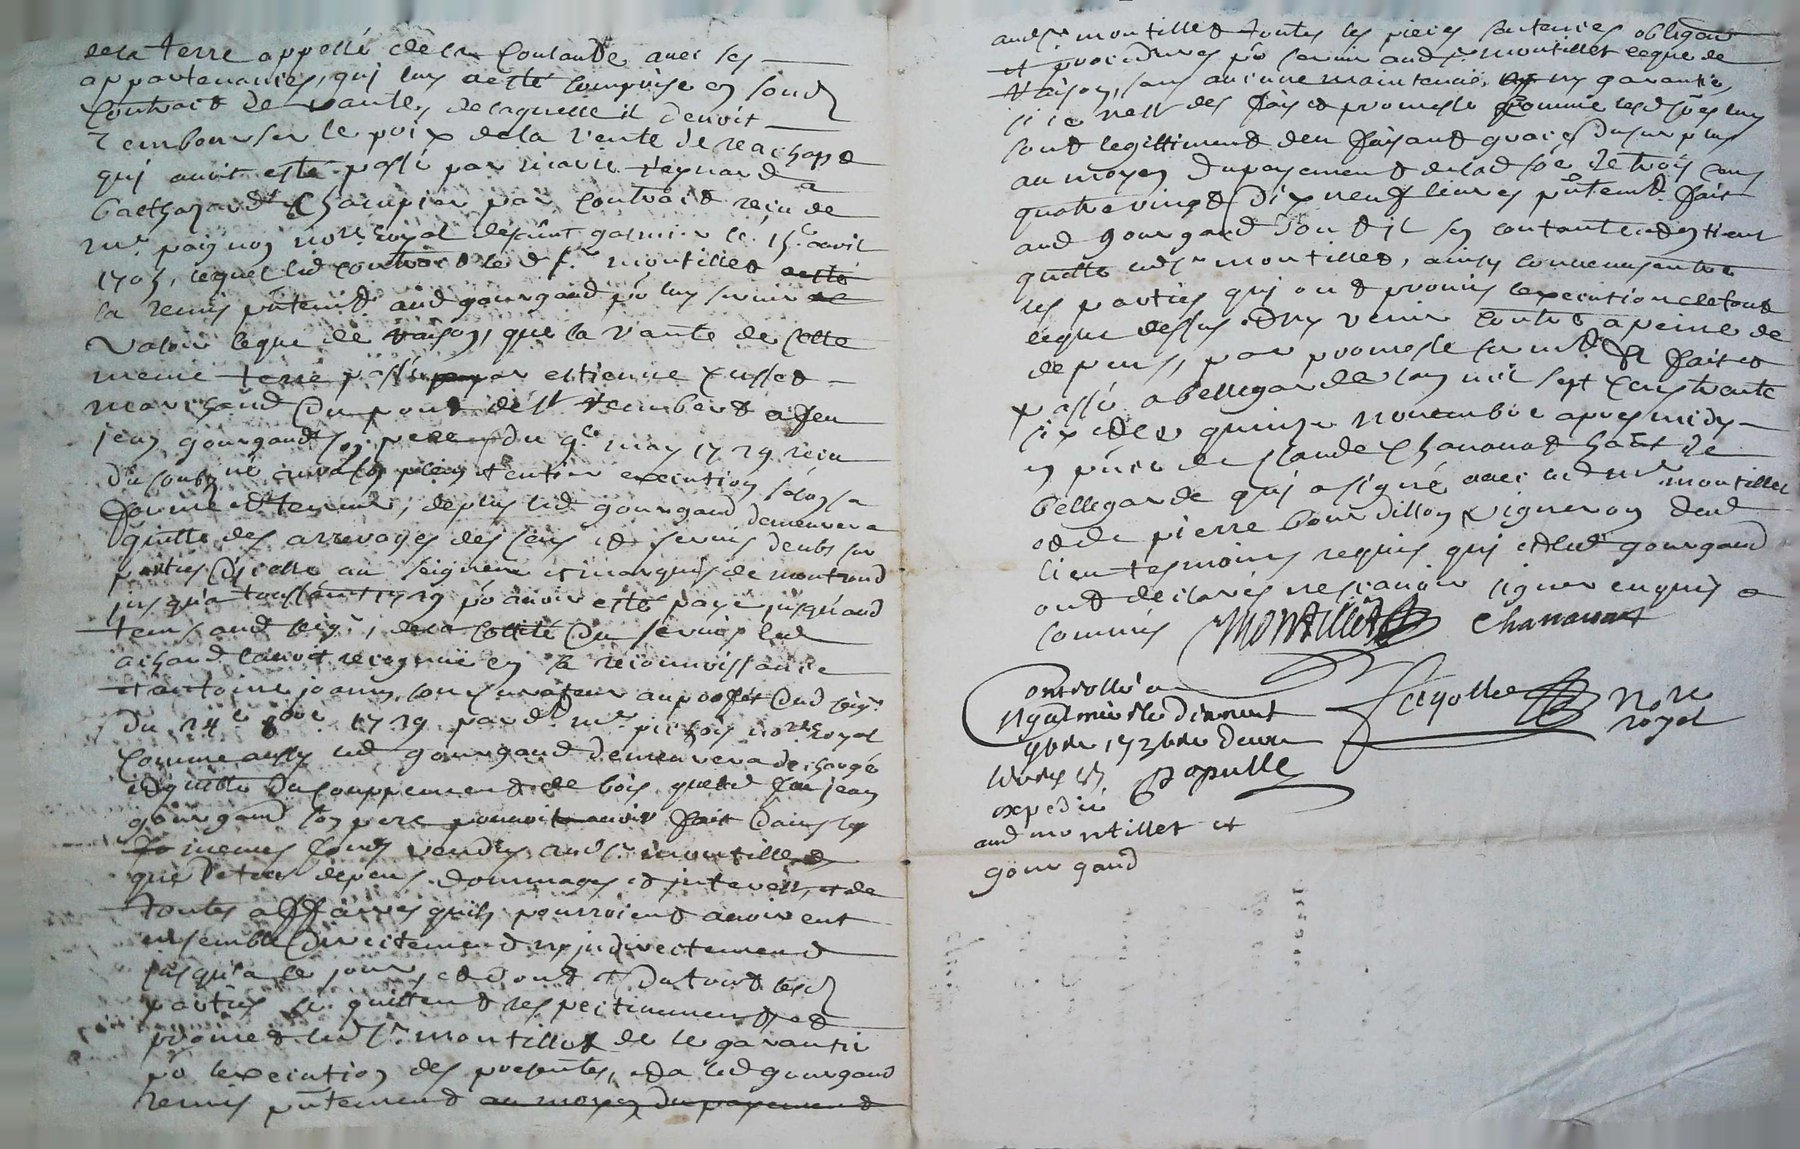 dela terre appellé dela Coulande avec ses
appartenances, qui luy a esté comprise en son d
Contract de vante, de laquelle il devoit
rembourser le prix dela vente de reachapt
qui avoit esté passé par marie Reynard a
balthazard Champier par Contract reçu de
mr paignon nore royal de saint galmier le 15e avril
1705, lequel lid contract led sr montillet
la remis pntemt aud gourgand po luy servir et
valoir ceque de raison, que la vante de cette
meme terre passée par estienne
marchand du pont de st rembert a feu
jean gourgand son pere du 9e may 1729 reçu
du soubne aura son plein et entier execution selon sa
forme et teneur, deplus led gourgand demeurera
quitte des arrerages des cens et servis deubs sur
parties dicelle au seigneur et marquis de montrond
jusqua toussaint 1729 po avoir esté payé jusquaud
tems aud seigr, dela cottité du servis led
achard lauroit recognue en sa reconnoissance
et antoine joanin son curateur au proffit dud seigr
du 24e 8bre 1729 par dt mr pichois nore royal
Comme aussy led gourgand demeurera dechargé
et quitte du couppement de bois que led feu jean
gourgand son pere pouvoit avoir fait dans les
memes fonds vendus aud sr montillet
que de tous depens dommages et interests, et de
toutes affaires quils pourroient avoir eut
ensemble directement ny indirectement
jusqua ce jour, et dont et du tout lesd
parties se quittent respectivement et
promet led sr montillet de le garantir
po lexecution des presentes, et a led gourgand
remis pntement au moyen du payement
aud sr montillet toutes les pieces sentences obligaon
et procedures po servir aud sr montillet ceque de
raison, sans aucune maintenue, ny garantie,
si ce nest des fais et promesse comme lesd soes luy
sont legittiment deu faisant grace du surplus
au moyen du payement delad soe de trois cens
quatre vingt dix neuf livres pntemt fait
aud gourgand dont il se contante et en tient
quitte led sr montillet, ainsy convenu entre
les parties qui ont promis lexecution de tout
ceque dessus et ny venir contre a peine de
depens, par promesse sermt &ct fait et
passé a bellegarde lan mil sept cens trante
six et le quinze novembre apres midy
en pnce de claude Chananat hant de
bellegarde qui a signé avec led mr montillet
et de pierre bourdillon vigneron dud
lieu tesmoins requis qui et led gourgand
ont declarés ne scavoir signer enquis et
sommés Montillet Chananat
Controllé a
st galmier le dixneuf
9bre 1736 reçu deux
livres
expedié
aud montillet et
gourgand
nore
royal